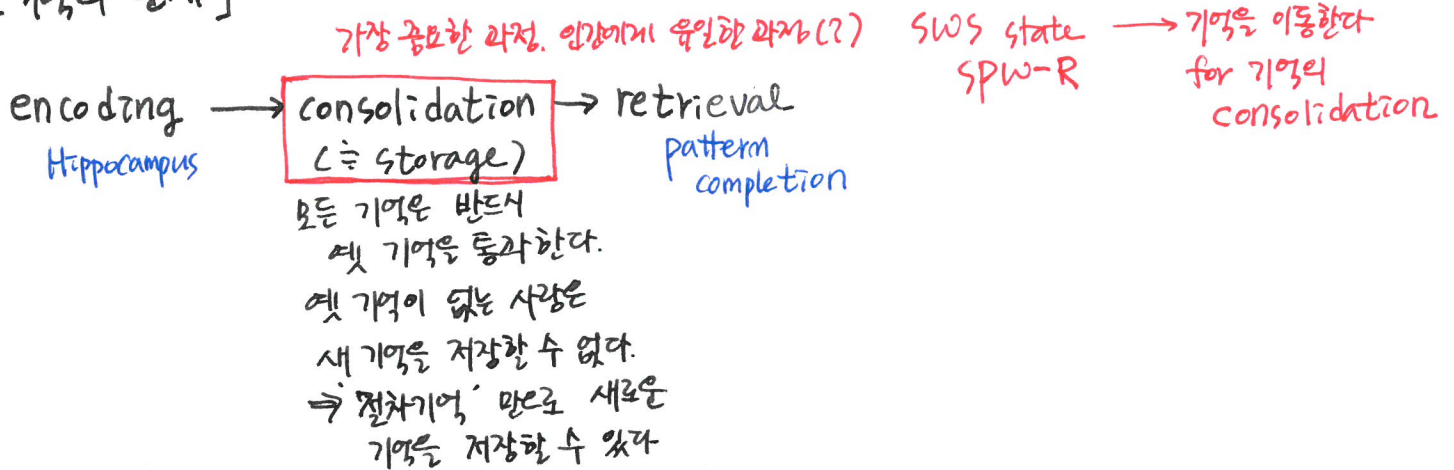 기억의 단계]
가장 중요한 과정. 인간에게 유일한 과정(?)
SWS state → 기억을 이동한다
SPW-R for 기억의
consolidation
encoding → consolidation → retrieval
Hippocampus (≒ storage) pattern
completion
모든 기억은 반드시
옛 기억을 통과한다.
옛 기억이 없는 사람은
새 기억을 저장할 수 없다.
⇒ '절차기억' 만으로 새로운
기억을 저장할 수 있다